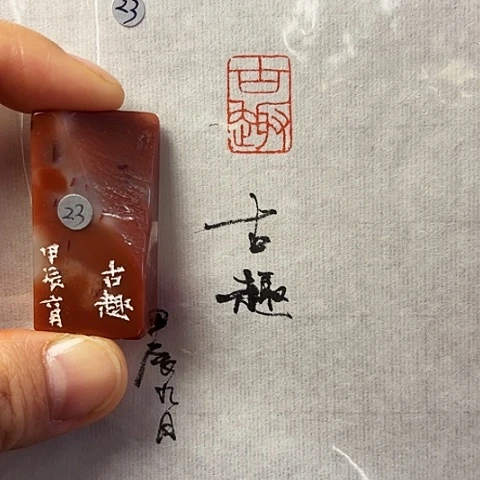 23
古趣
古
趣
甲辰九月
23
古趣
甲辰六月